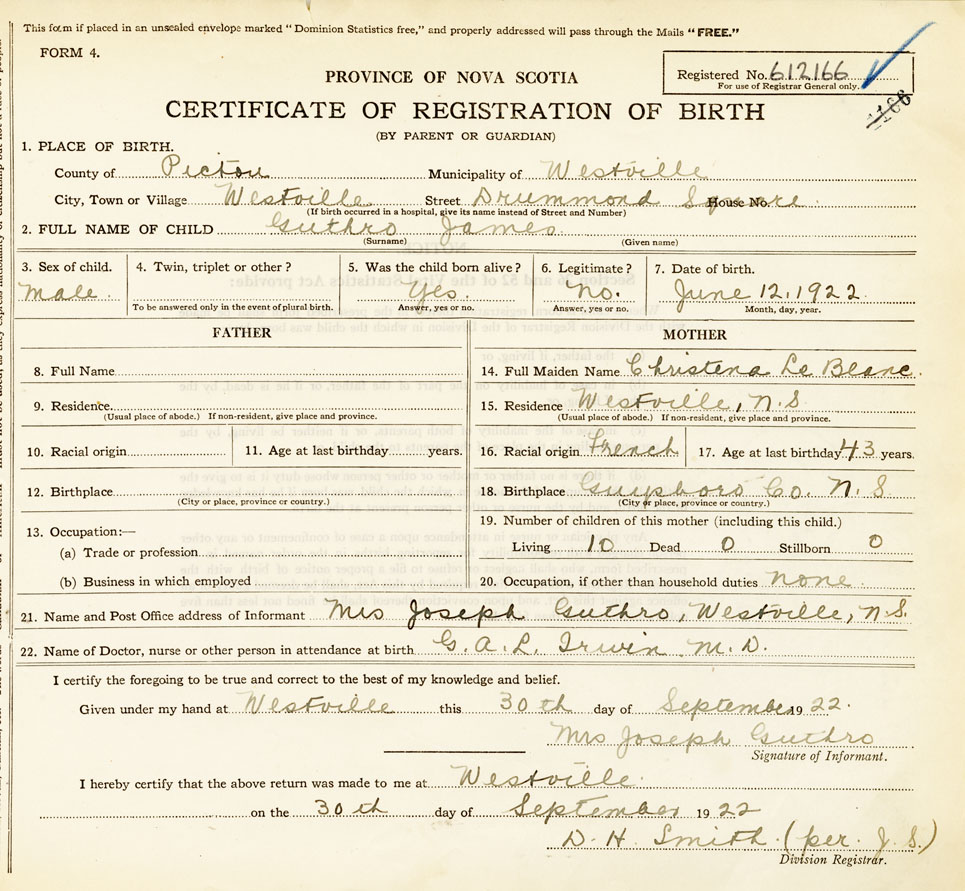 This form if placed in an unsealed envelope marked "Dominion Statistics free," and properly addressed will pass through the Mails "FREE."
FORM 4.
Registered No. 612166
For use of Registrar General only.
1166
PROVINCE OF NOVA SCOTIA
CERTIFICATE OF REGISTRATION OF BIRTH
(BY PARENT OR GUARDIAN)
1. PLACE OF BIRTH.
County of Pictou Municipality of Westville
City, Town or Village Westville Street Drummond Square House No.
(If birth occurred in a hospital, give its name instead of Street and Number)
2. FULL NAME OF CHILD Guthro James
(Surname) (Given name)
3. Sex of child. 4. Twin, triplet or other? 5. Was the child born alive? 6. Legitimate? 7. Date of birth.
Male. Yes. No. June 12, 1922
To be answered only in the event of plural birth. Answer, yes or no. Answer, yes or no. Month, day, year.
FATHER MOTHER
8. Full Name 14. Full Maiden Name Christena Le Blanc.
9. Residence. 15. Residence Westville, N.S
(Usual place of abode.) If non-resident, give place and province. (Usual place of abode.) If non-resident, give place and province.
10. Racial origin 11. Age at last birthday years. 16. Racial origin French 17. Age at last birthday 43 years.
12. Birthplace 18. Birthplace Guysboro Co. N.S.
(City or place, province or country.) (City or place, province or country.)
13. Occupation:— 19. Number of children of this mother (including this child.)
(a) Trade or profession Living 10 Dead 0 Stillborn 0
(b) Business in which employed 20. Occupation, if other than household duties none
21. Name and Post Office address of Informant Mrs Joseph Guthro, Westville, N.S.
22. Name of Doctor, nurse or other person in attendance at birth G. A. L. Irwin M.D.
I certify the foregoing to be true and correct to the best of my knowledge and belief.
Given under my hand at Westville this 30th day of September 1922.
Mrs Joseph Guthro
Signature of Informant.
I hereby certify that the above return was made to me at Westville
on the 30th day of September 1922
D. H. Smith (per. J. S.)
Division Registrar.